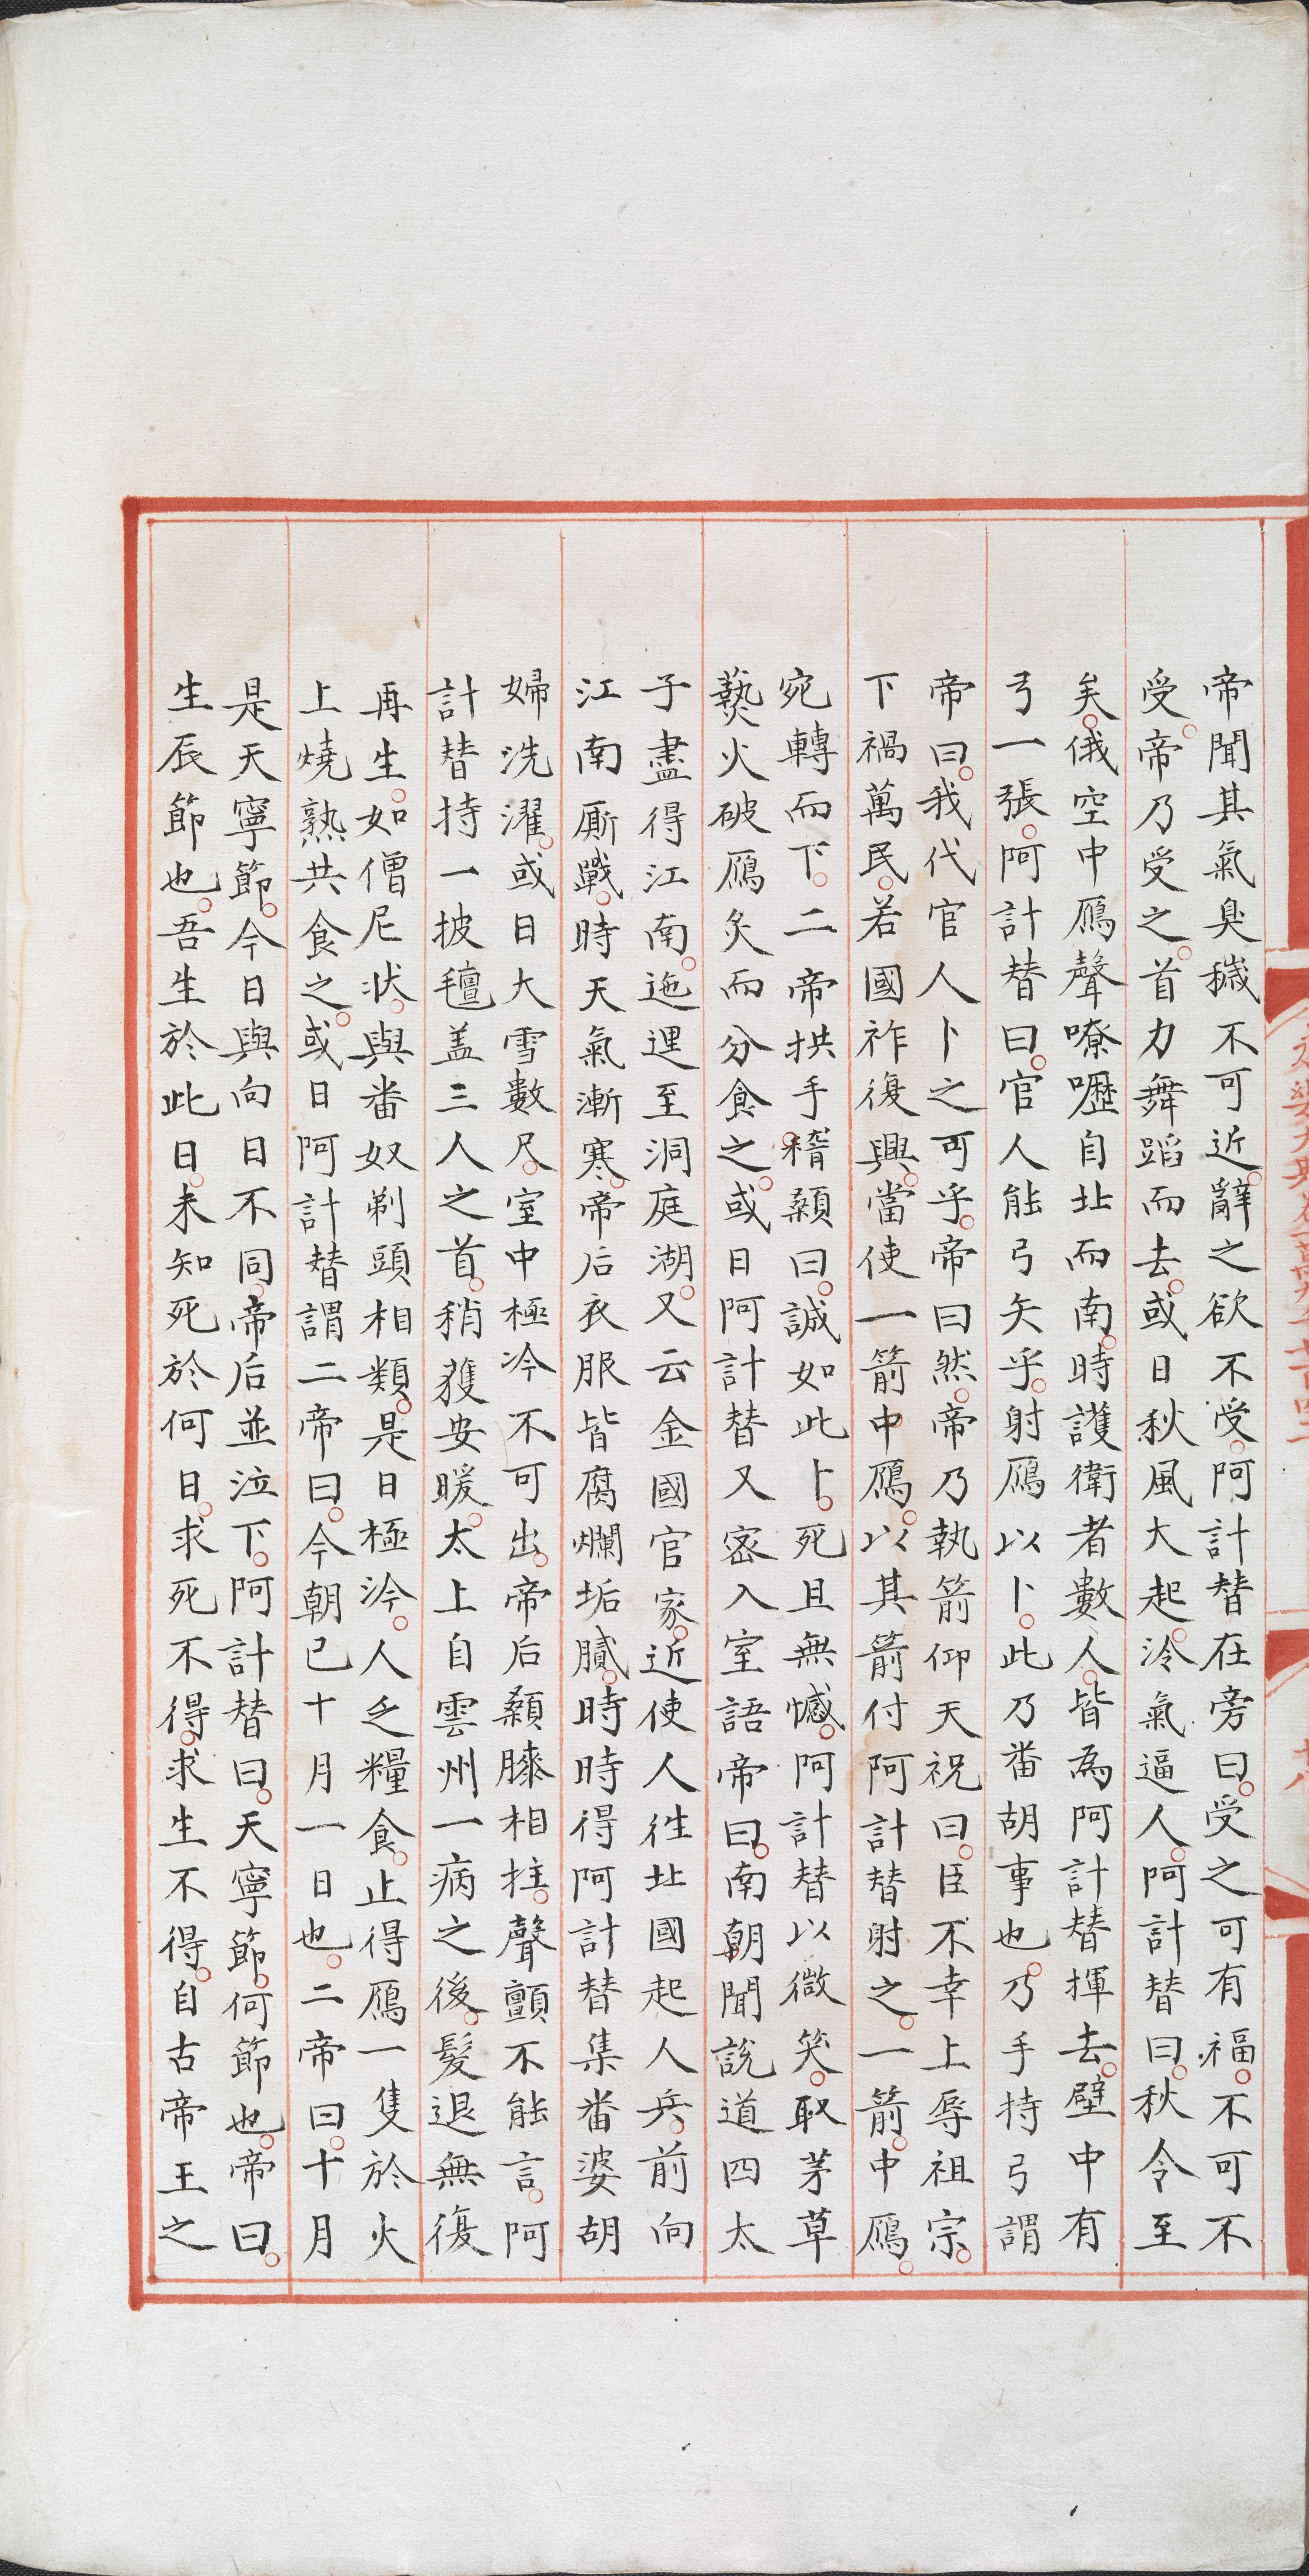 帝聞其氣臭穢不可近辭之欲不受阿計替在旁曰受之可有福不可不
受帝乃受之首力舞蹈而去或日秋風大起冷氣逼人阿計替曰秋令至
矣俄空中鴈聲嘹嚦自北而南時護衛者數人皆為阿計替揮去壁中有
弓一張阿計替曰官人能弓矢乎射鴈以卜此乃畨胡事也乃手持弓謂
帝曰我代官人卜之可乎帝曰然帝乃執箭仰天祝曰臣不幸上辱祖宗
下禍萬民若國祚復興當使一箭中鴈以其箭付阿計替射之一箭中鴈
宛轉而下二帝拱手稽顙曰誠如此卜死且無憾阿計替以微笑取茅草
爇火破鴈炙而分食之或日阿計替又密入室語帝曰南朝聞說道四太
子盡得江南迤逦至洞庭湖又云金國官家近使人往北國起人兵前向
江南厮戰時天氣漸寒帝后衣服皆腐爛垢膩時時得阿計替集畨婆胡
婦洗濯或日大雪數尺室中極冷不可出帝后顙膝相拄聲顫不能言阿
計替持一披氊盖三人之首稍獲安暖太上自雲州一病之後髮退無復
再生如僧尼狀與畨奴剃頭相類是日極冷人乏糧食止得鴈一隻於火
上燒熟共食之或日阿計替謂二帝曰今朝已十月一日也二帝曰十月
是天寧節今日與向日不同帝后並泣下阿計替曰天寧節何節也帝曰
生辰節也吾生於此日未知死於何日求死不得求生不得自古帝王之